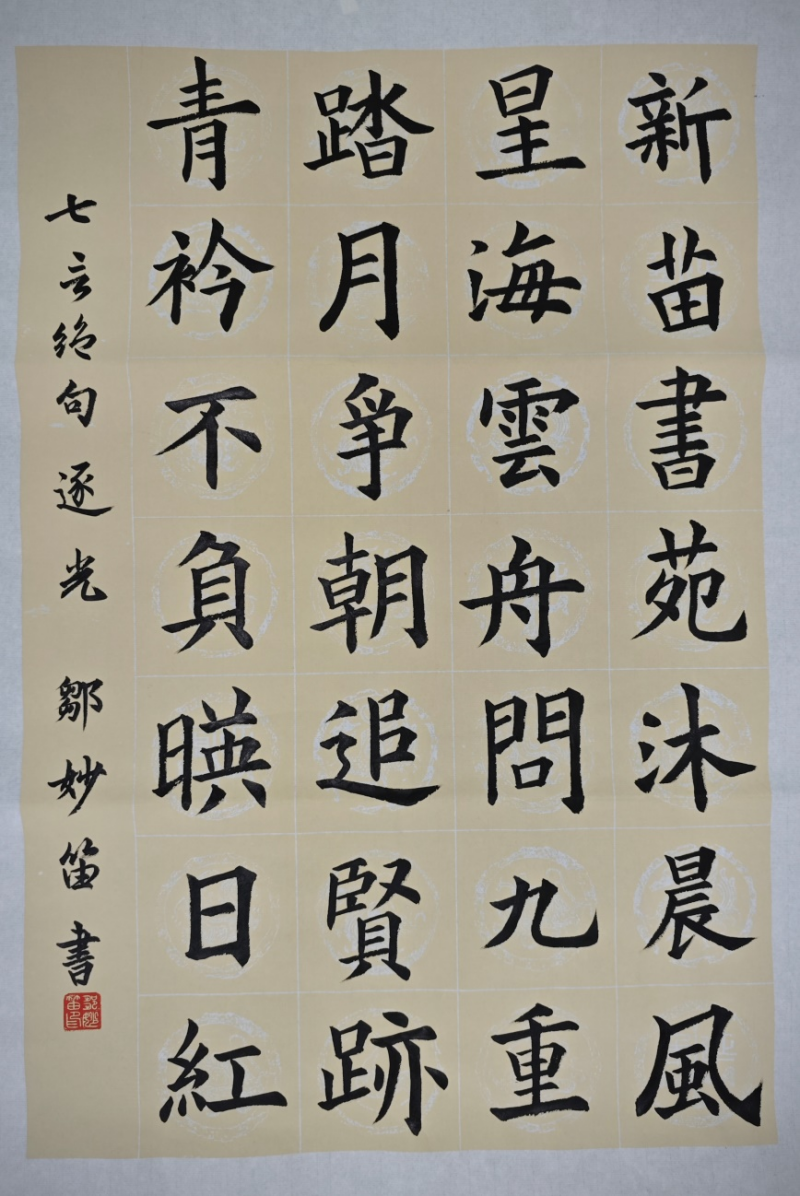 新苗書苑沐晨風
星海雲舟問九重
踏月爭朝追賢跡
青衿不負暎日紅
七言绝句 逐光 鄒妙笛書